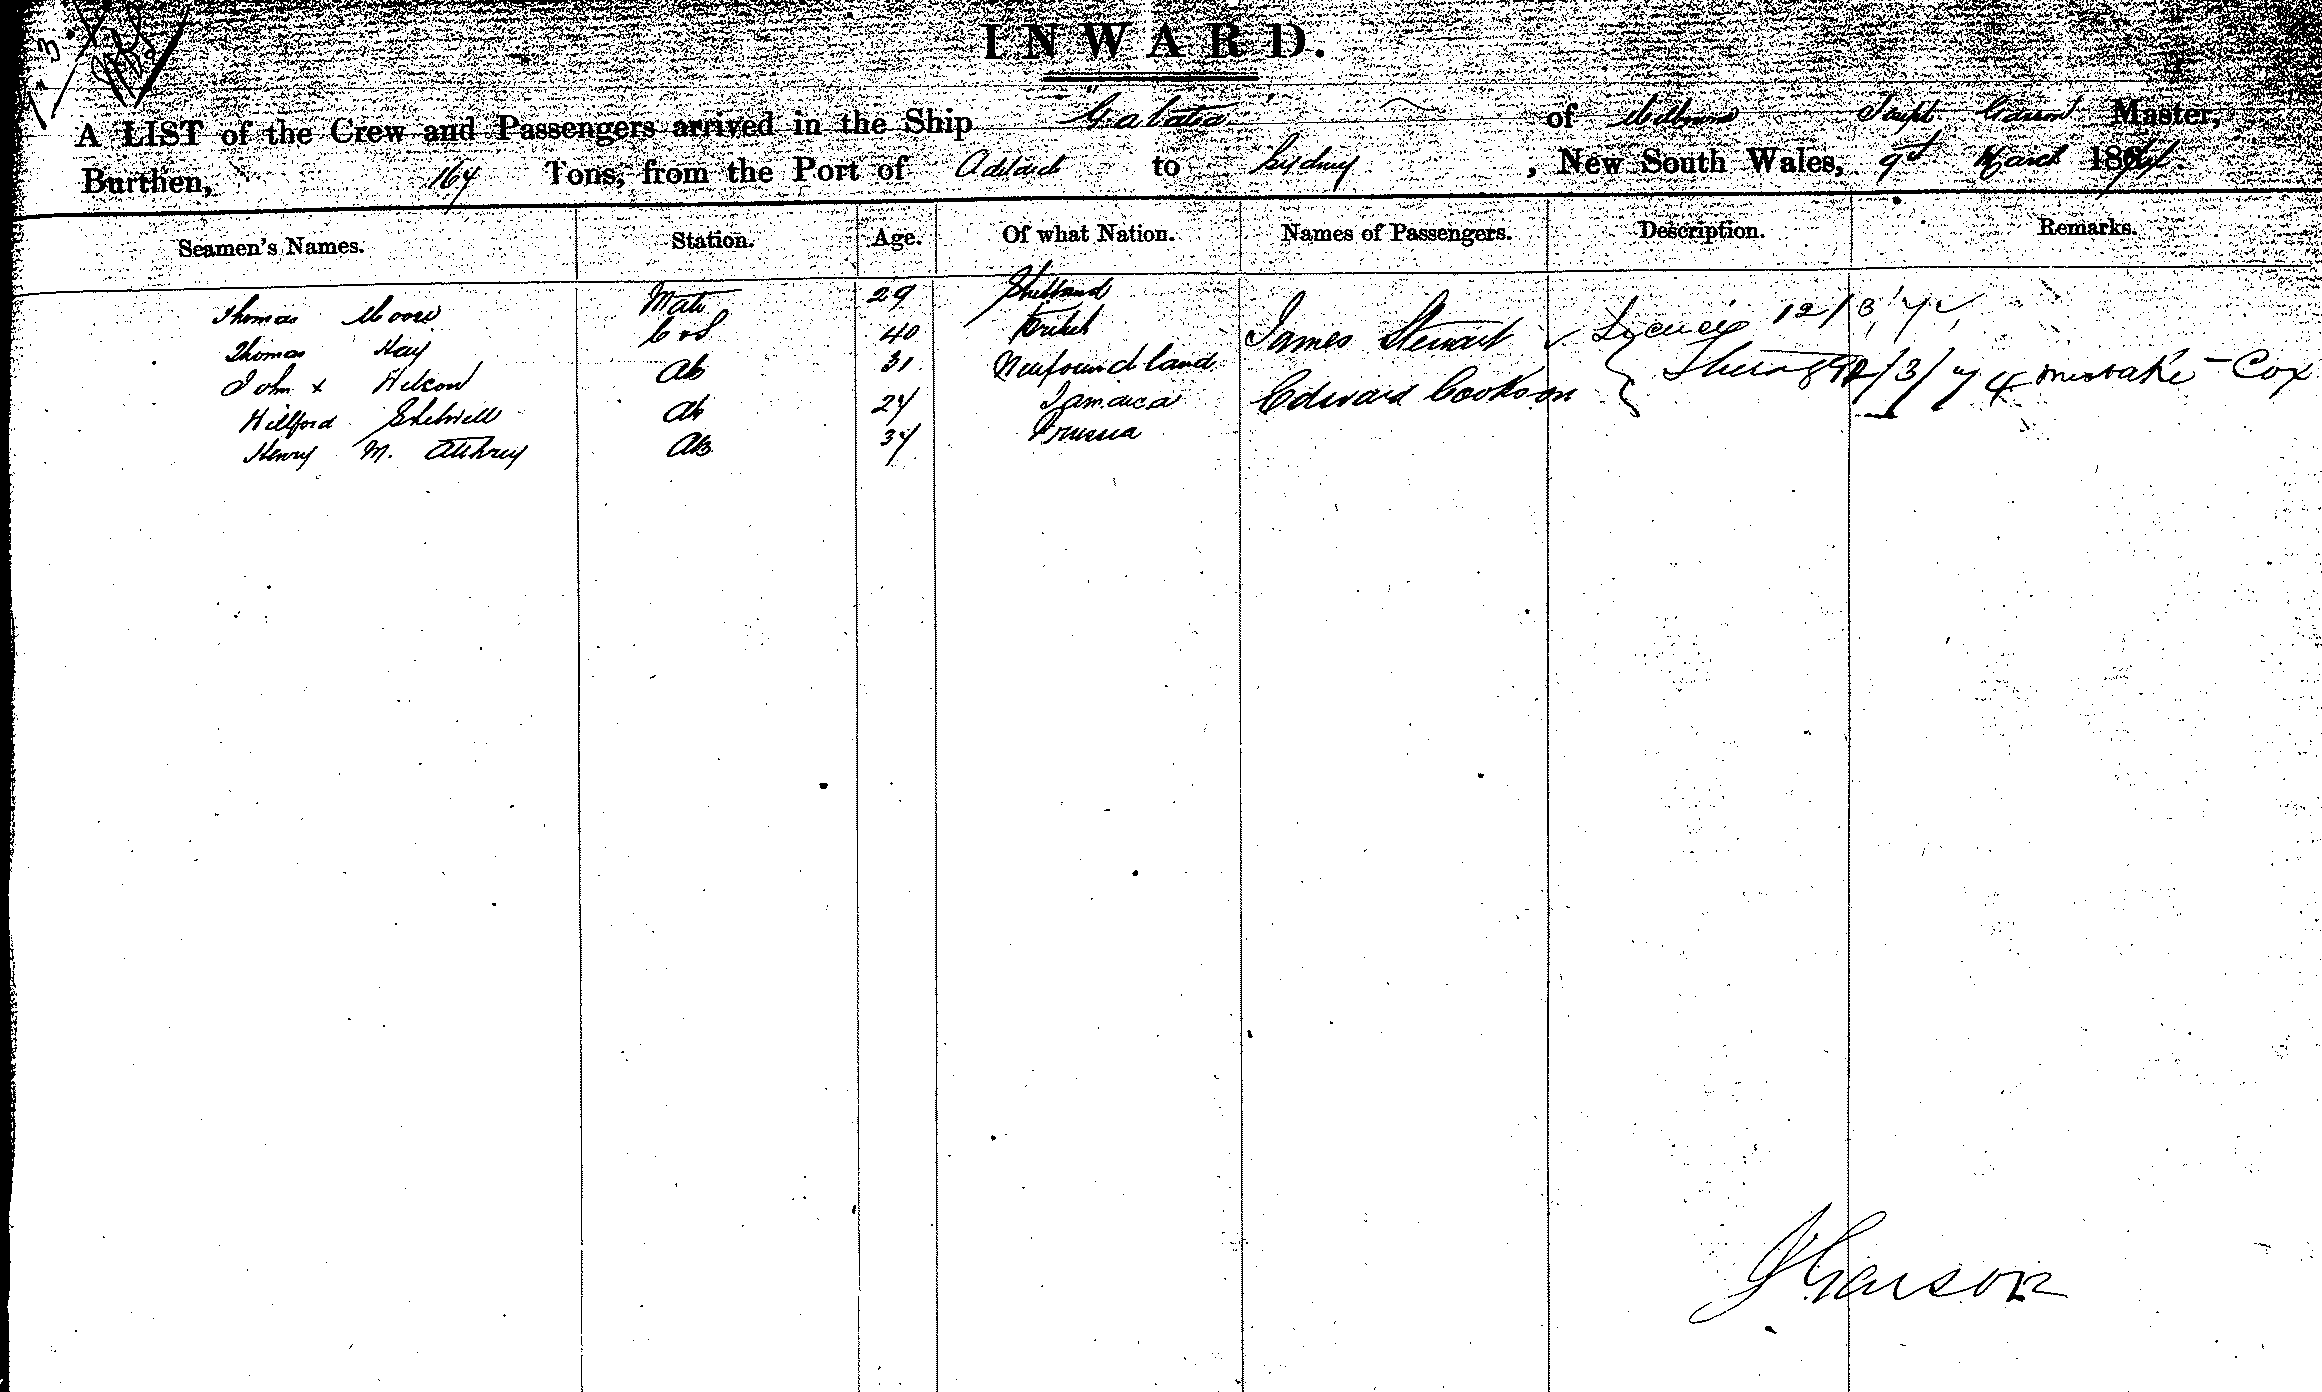 INWARD.
A LIST of the Crew and Passengers arrived in the Ship "Galatea" of Melbourne Joseph Garson Master,
Burthen, 164 Tons, from the Port of Adelaide to Sydney, New South Wales, 9th March 1874.
Seamen's Names. Station. Age. Of what Nation. Names of Passengers. Description. Remarks.
Thomas Moore Mate 29 Shetland
Thomas Hay C & S 40 British James Stewart 12/3/74
John x Wilson AB 31 Newfoundland Edward Cookson 12/3/74 mistake - Cox
Willford AB 24 Jamaica
Henry M. AB 34 Prussia
J Garson